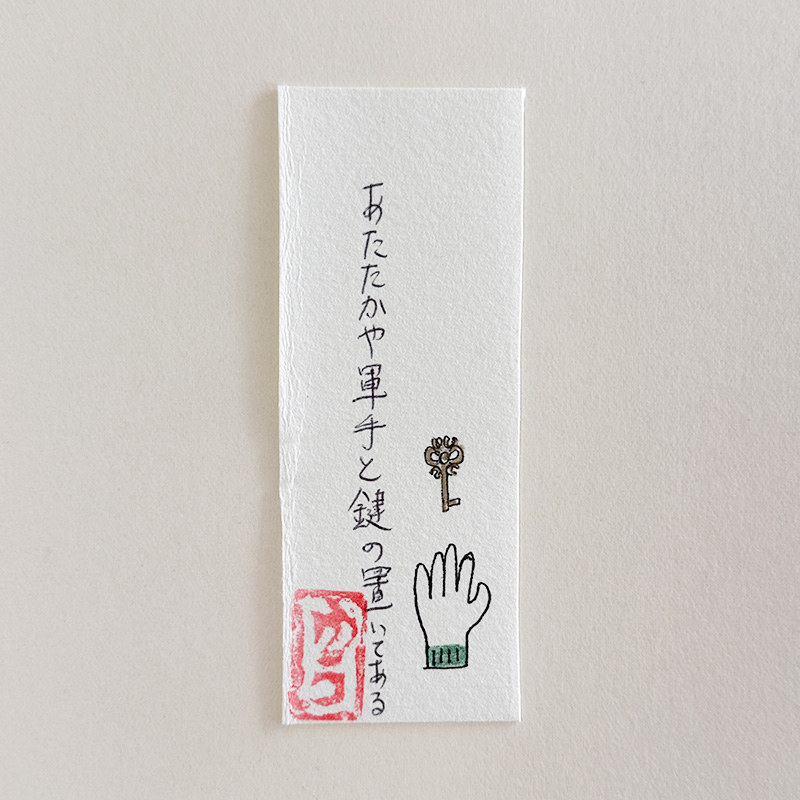 あたたかや軍手と鍵の置いてある